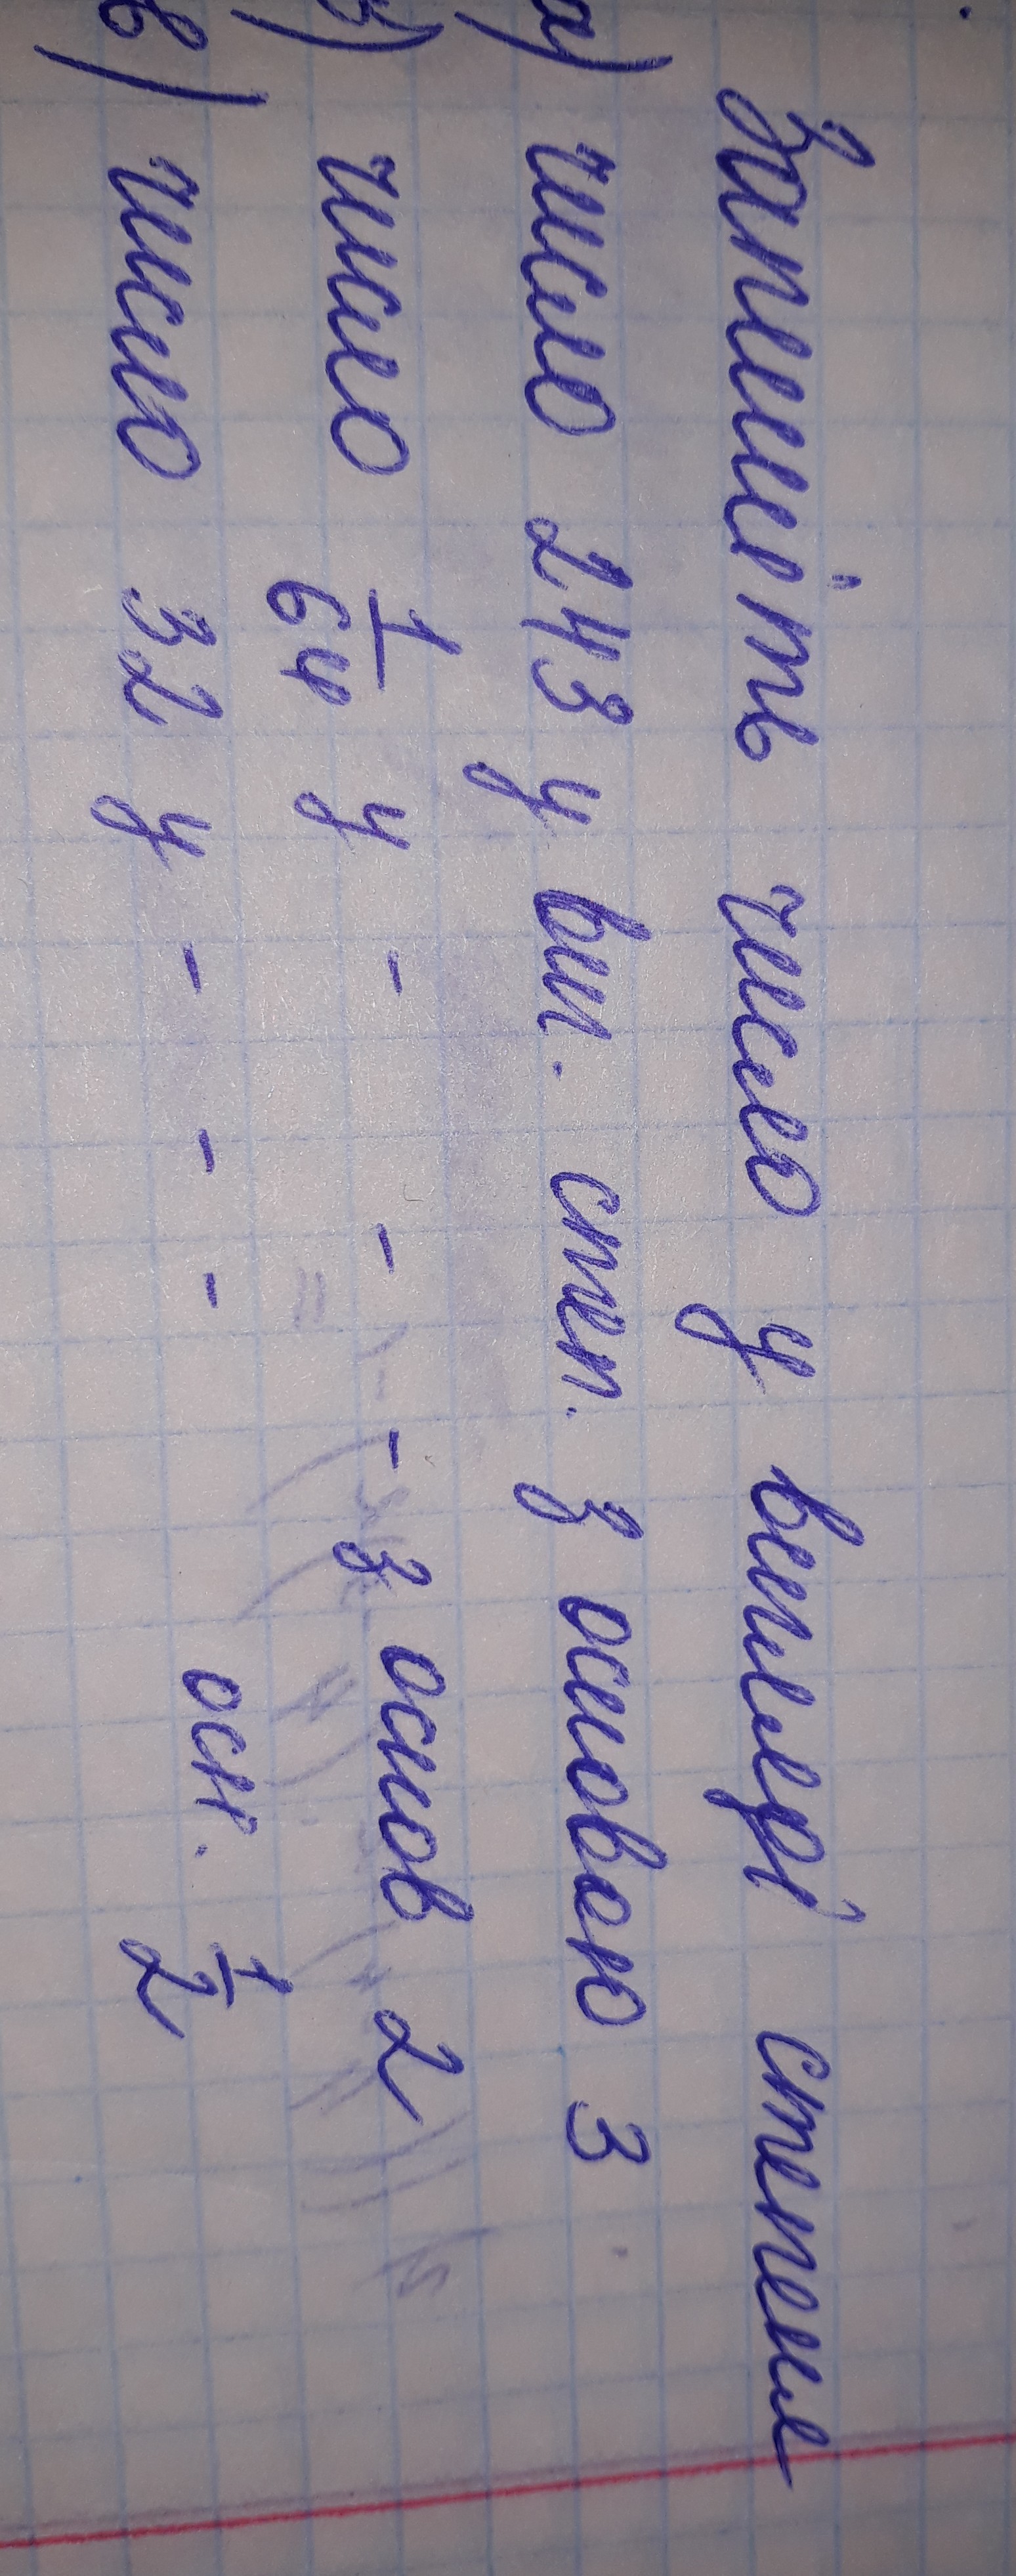 Запишіть число у вигляді степеня
а) число 243 у виг. степ. з основою 3
б) число 1/64 у - - - з основ 2
в) число 32 у - - - осн. 1/2